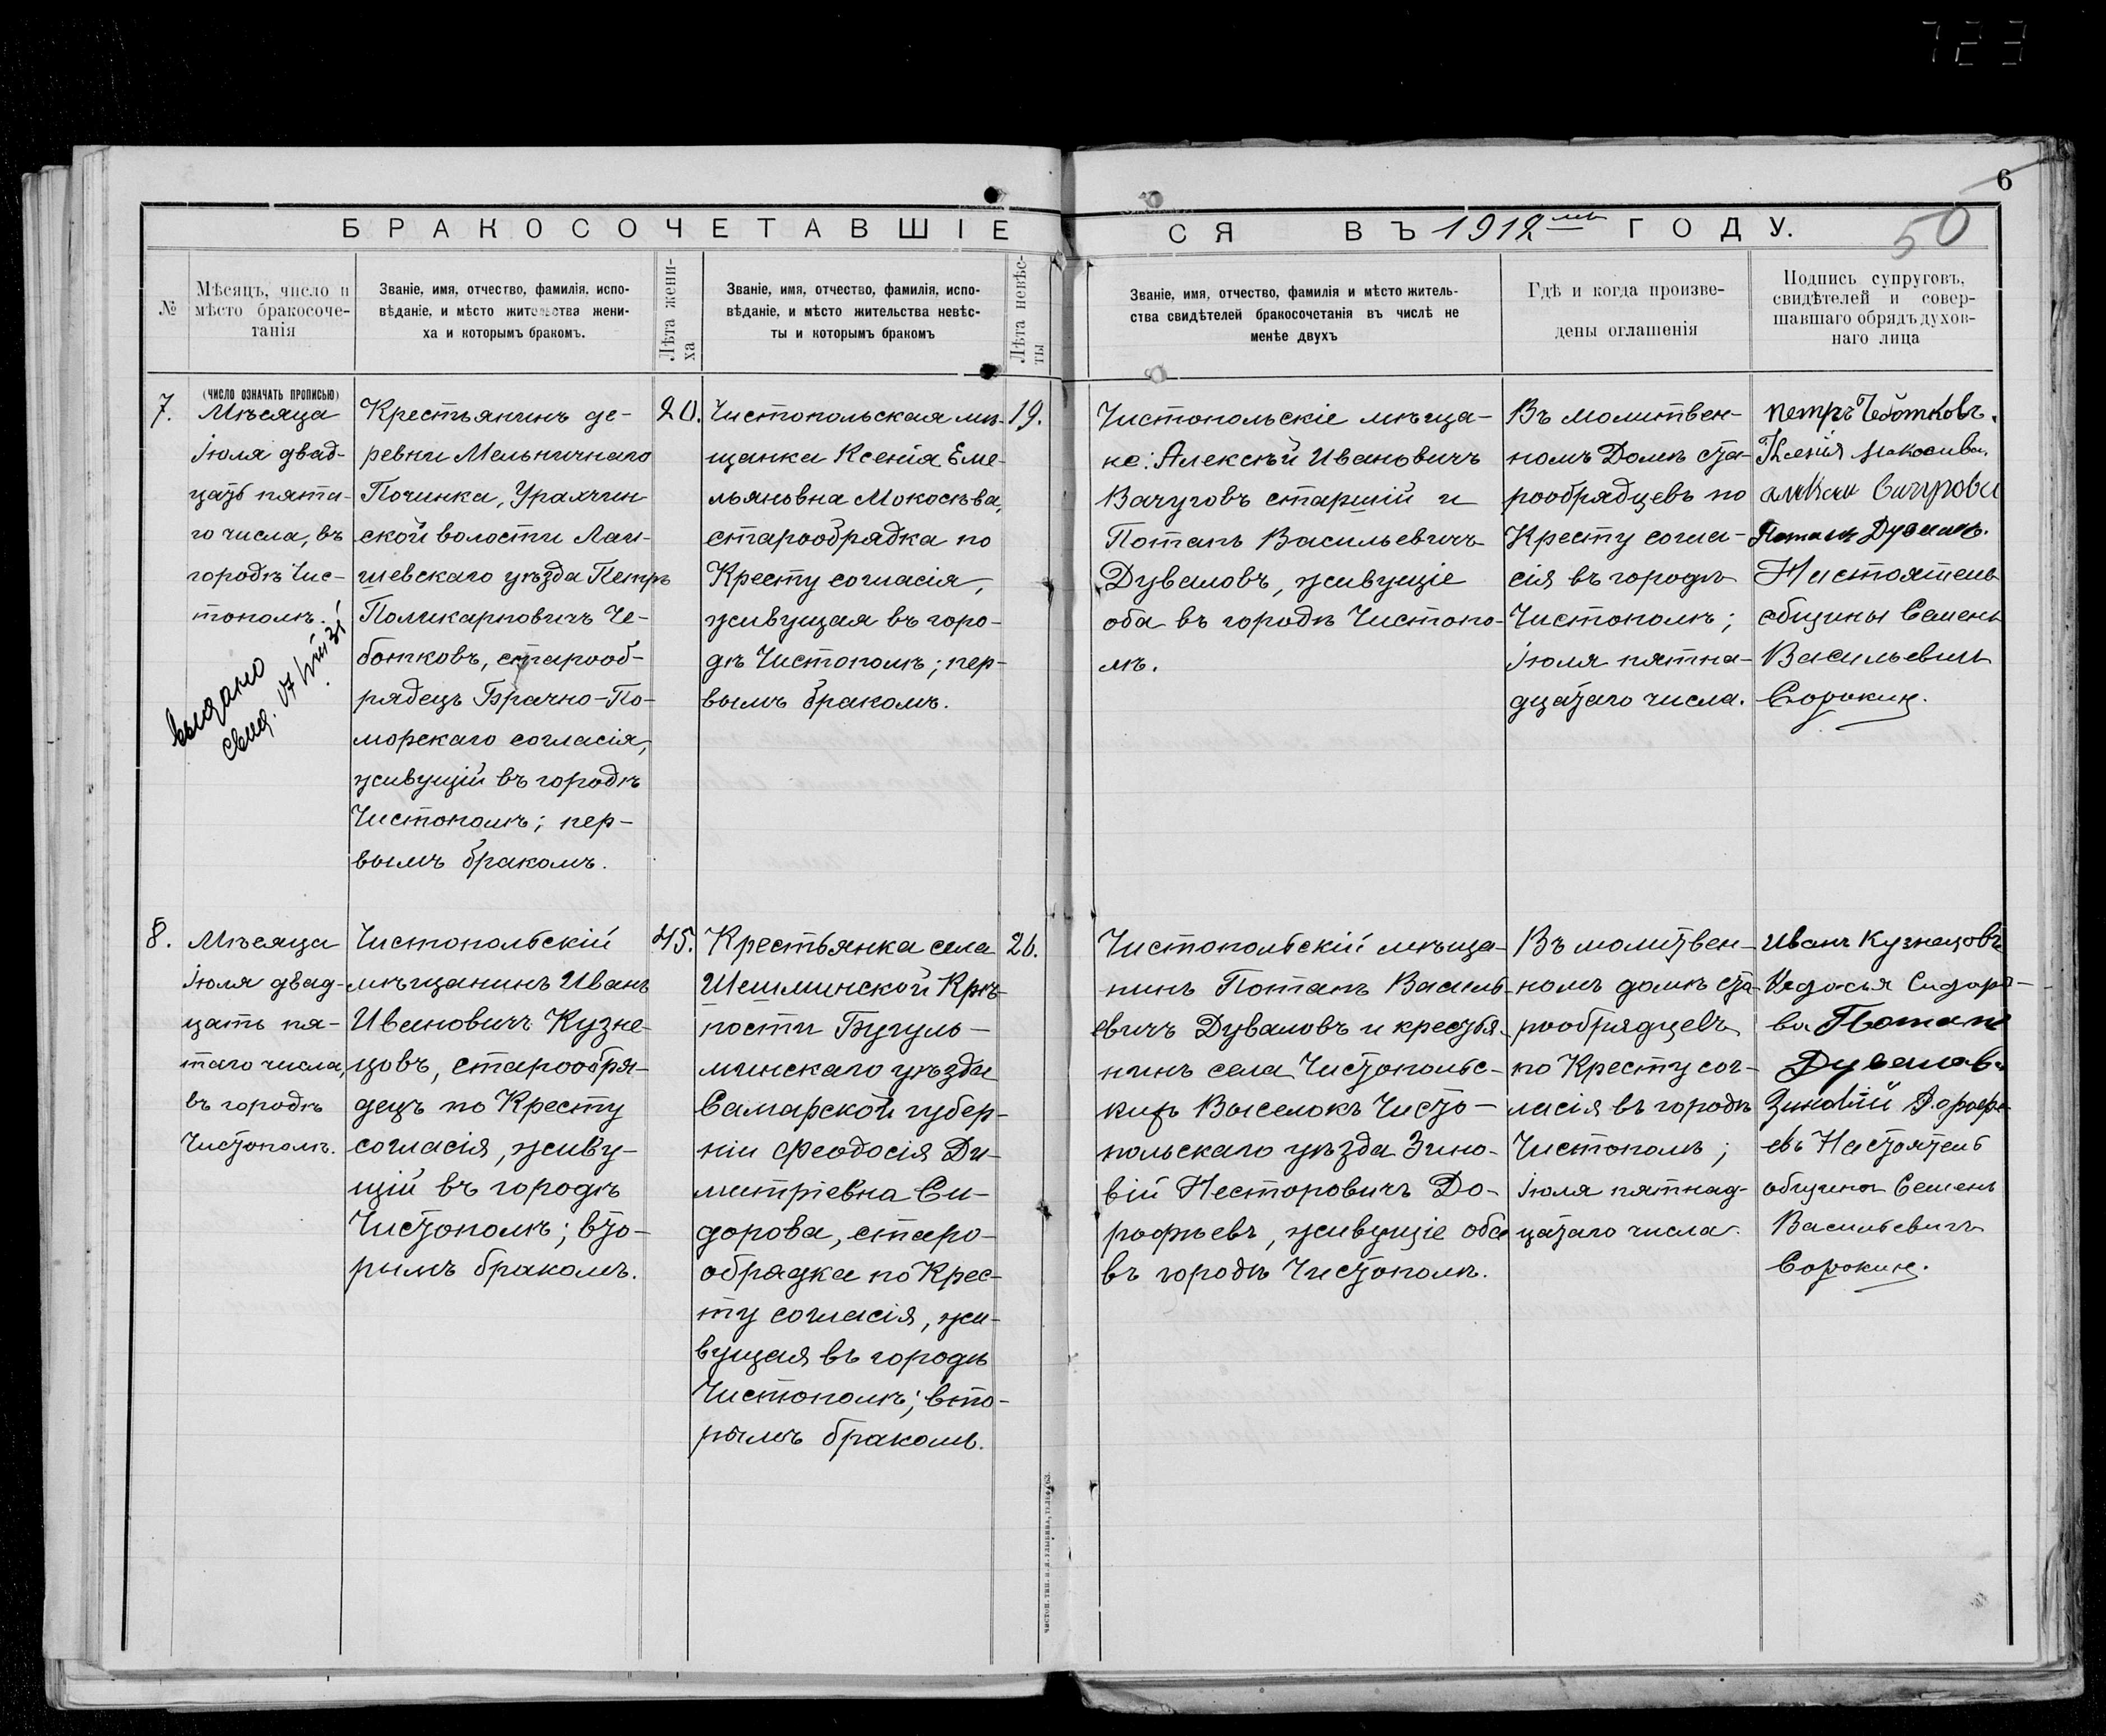 723
6
50
БРАКОСОЧЕТАВШІЕ
СЯ ВЪ 1912 мъ ГОДУ.
№
Мѣсяцъ, число и
мѣсто бракосоче-
танія
(число означать прописью)
Званіе, имя, отчество, фамилія, испо-
вѣданіе, и мѣсто жительства жени-
ха и которымъ бракомъ.
Лѣта жени-
ха
Званіе, имя, отчество, фамилія, испо-
вѣданіе, и мѣсто жительства невѣс-
ты и которымъ бракомъ
Лѣта невѣс-
ты
Званіе, имя, отчество, фамилія и мѣсто житель-
ства свидѣтелей бракосочетанія въ числѣ не
менѣе двухъ
Гдѣ и когда произве-
дены оглашенія
Подпись супруговъ,
свидѣтелей и совер-
шавшаго обрядъ духов-
наго лица
7.
Мѣсяца
Іюля двад-
цать пята-
го числа, въ
городѣ Чис-
тополѣ.
выдано
свид.
Крестьянинъ де-
ревни Мельничнаго
Починка, Урахчин
ской волости Лаи-
шевскаго уѣзда Петръ
Поликарповичъ Че-
ботковъ, старооб-
рядецъ Брачно-По-
морскаго согласія,
живущій въ городѣ
Чистополѣ; пер-
вымъ бракомъ.
20.
Чистопольская мѣ-
щанка Ксенія Еме-
льяновна Мокосѣва,
старообрядка по
Кресту согласія,
живущая въ горо-
дѣ Чистополѣ; пер-
вымъ бракомъ.
19.
Чистопольскіе мѣща-
не: Алексѣй Ивановичъ
Вачуговъ старшій и
Потапъ Васильевичъ
Дуваловъ, живущіе
оба въ городѣ Чистопо-
лѣ.
Въ молитвен-
номъ Домѣ ста-
рообрядцевъ по
Кресту согла-
сія въ городѣ
Чистополѣ;
Іюля пятна-
дцатаго числа.
Петръ Чеботковъ.
Ксенія Мокосива.
Потапъ Дуваловъ.
Настоятель
общины Семенъ
Васильевичъ
Сорокин.
8.
Мѣсяца
Іюля двад-
цать пя-
таго числа,
въ городѣ
Чистополѣ.
Чистопольскій
мѣщанинъ Иванъ
Ивановичъ Кузне-
цовъ, старообря-
децъ по Кресту
согласія, живу-
щій въ городѣ
Чистополѣ; вто-
рымъ бракомъ.
45.
Крестьянка села
Шешминской Крѣ-
пости Бугуль-
минскаго уѣзда
Самарской губер-
ніи Феодосія Ди-
митріевна Си-
дорова, старо-
обрядка по Крес-
ту согласія, жи-
вущая въ городѣ
Чистополѣ; вто-
рымъ бракомъ.
26.
Чистопольскій мѣща-
нинъ Потапъ Василь-
евичъ Дуваловъ и крестья-
нинъ села Чистопольс-
кихъ Выселокъ Чисто-
польскаго уѣзда Зино-
вій Несторовичъ До-
рофѣевъ, живущіе оба
въ городѣ Чистополѣ.
Въ молитвен-
номъ домѣ ста-
рообрядцевъ
по Кресту сог-
ласія въ городѣ
Чистополѣ;
Іюля пятнад-
цатаго числа.
Иванъ Кузнецовъ
Федосья Сидоро-
ва Потапъ
Дуваловъ
Зиновій Дорофе
евъ Настоятель
общины Семенъ
Васильевичъ
Сорокин.